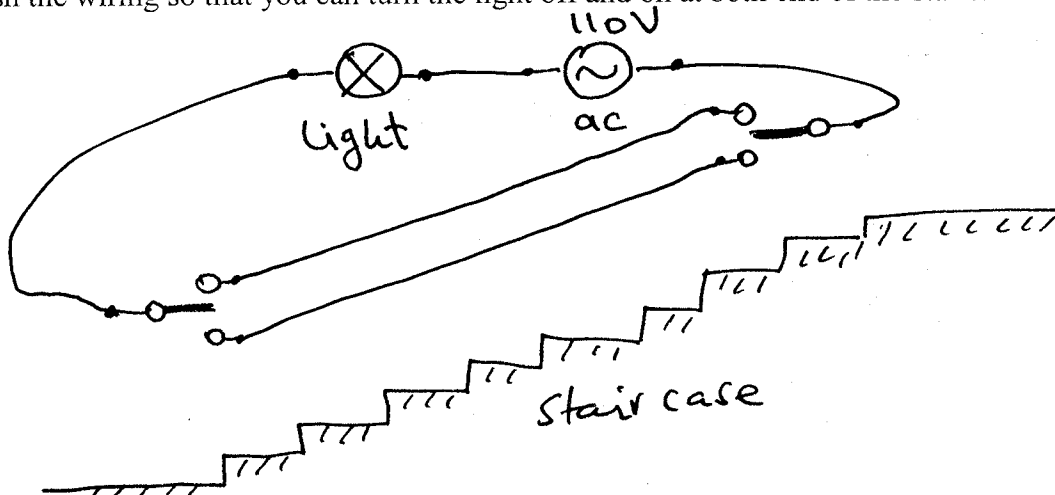 the wiring so that you can turn the light off and on at both end of the
110V
light
ac
stair case